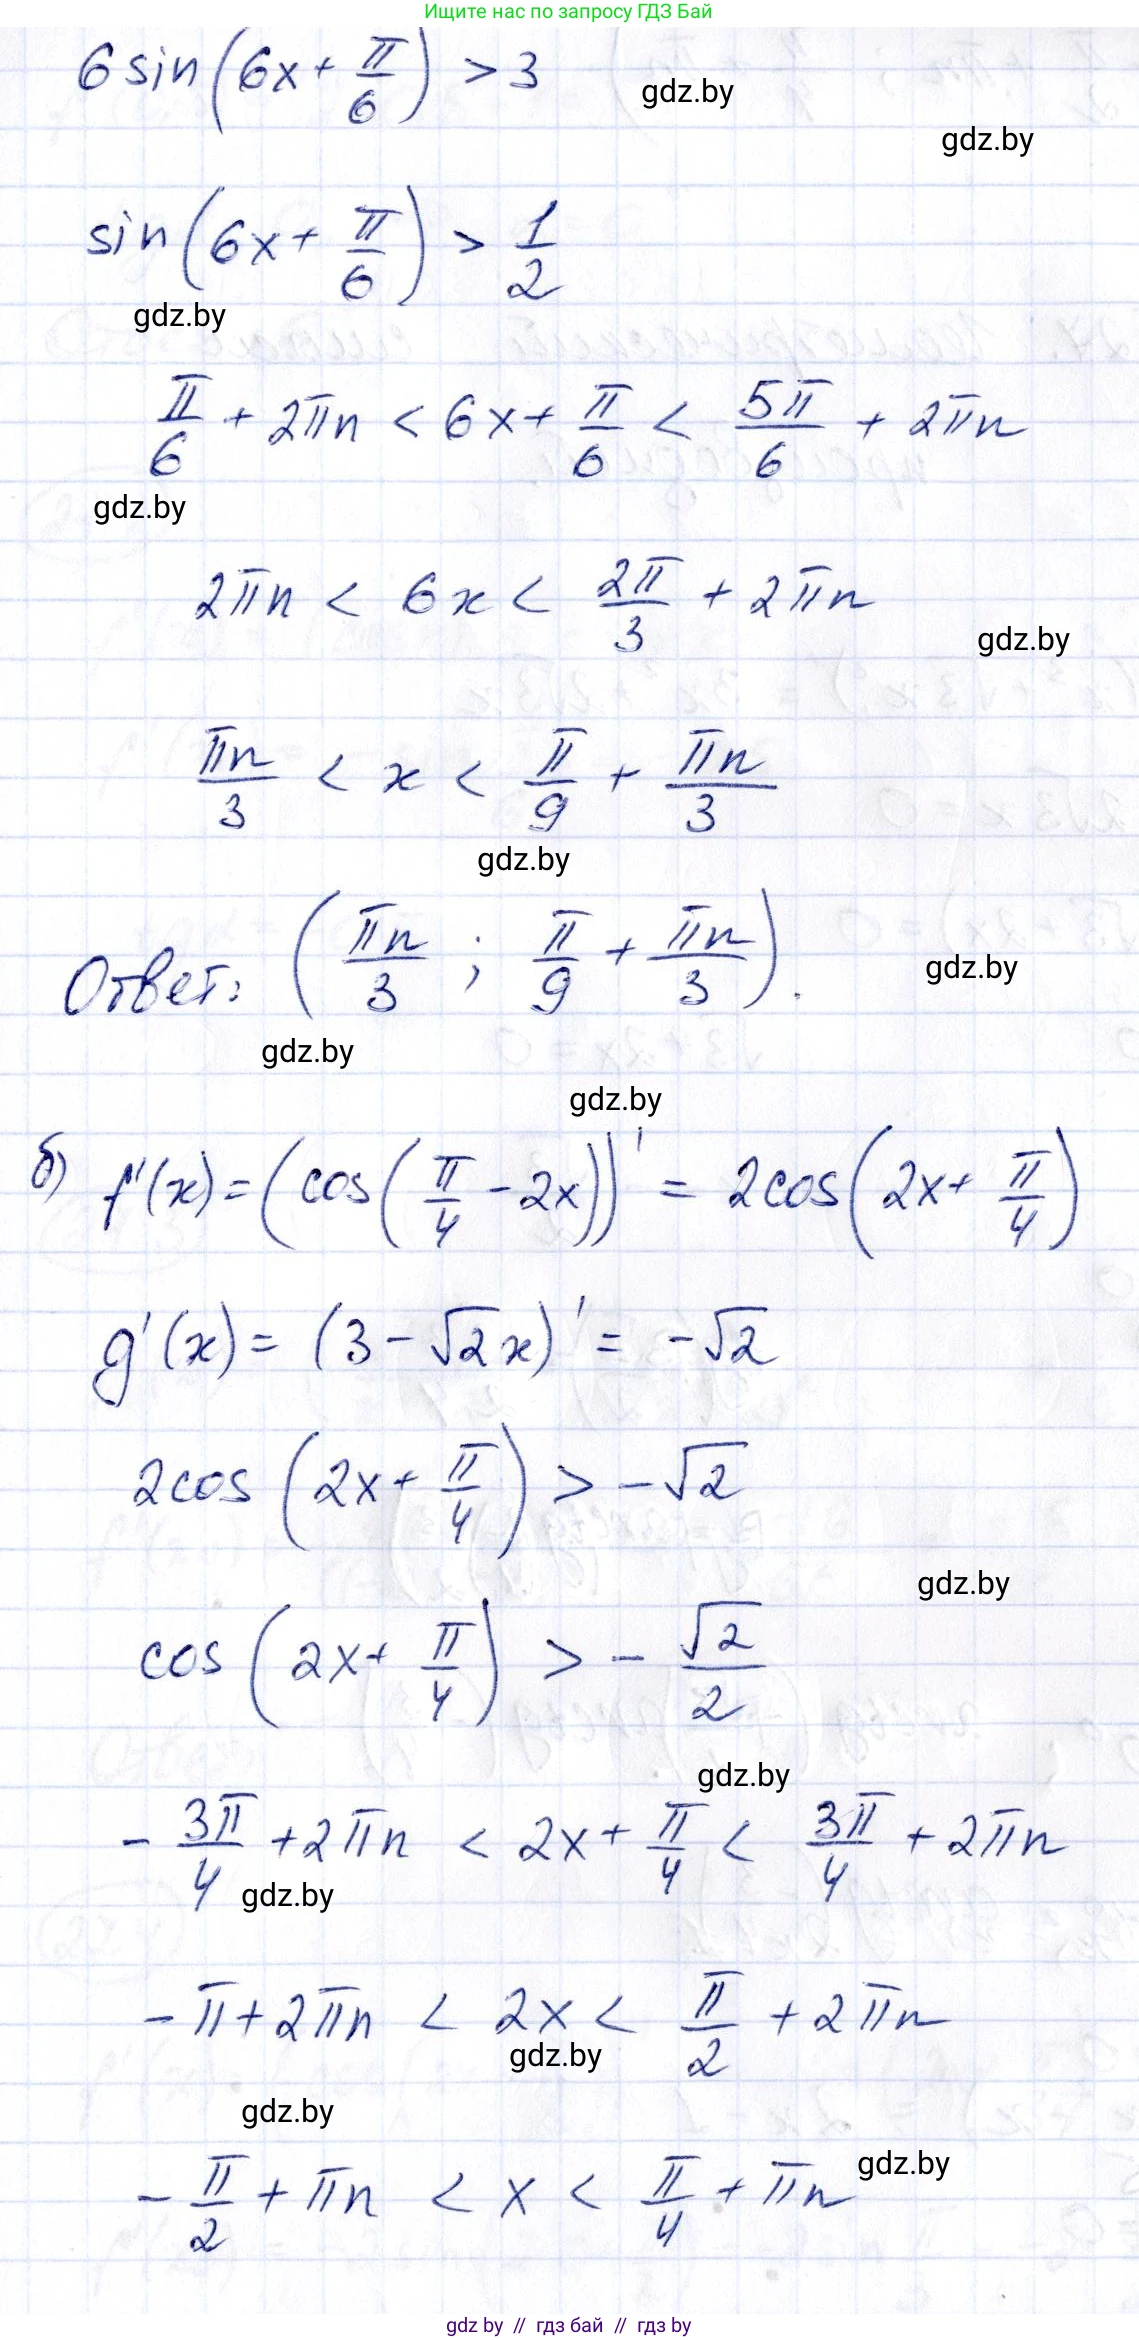 Ищите нас по запросу ГДЗ Бай
6 sin(6x + π/6) > 3
gdz.by
gdz.by
sin(6x + π/6) > 1/2
gdz.by
π/6 + 2πn < 6x + π/6 < 5π/6 + 2πn
gdz.by
2πn < 6x < 2π/3 + 2πn
gdz.by
πn/3 < x < π/9 + πn/3
gdz.by
Ответ: (πn/3 ; π/9 + πn/3).
gdz.by
gdz.by
gdz.by
б) f'(x) = (cos(π/4 - 2x))' = 2cos(2x + π/4)
g'(x) = (3 - √2x)' = -√2
2cos(2x + π/4) > -√2
gdz.by
cos(2x + π/4) > -√2/2
gdz.by
-3π/4 + 2πn < 2x + π/4 < 3π/4 + 2πn
gdz.by
-π + 2πn < 2x < π/2 + 2πn
gdz.by
gdz.by
gdz.by
-π/2 + πn < x < π/4 + πn
gdz by // гдз бай // гдз by